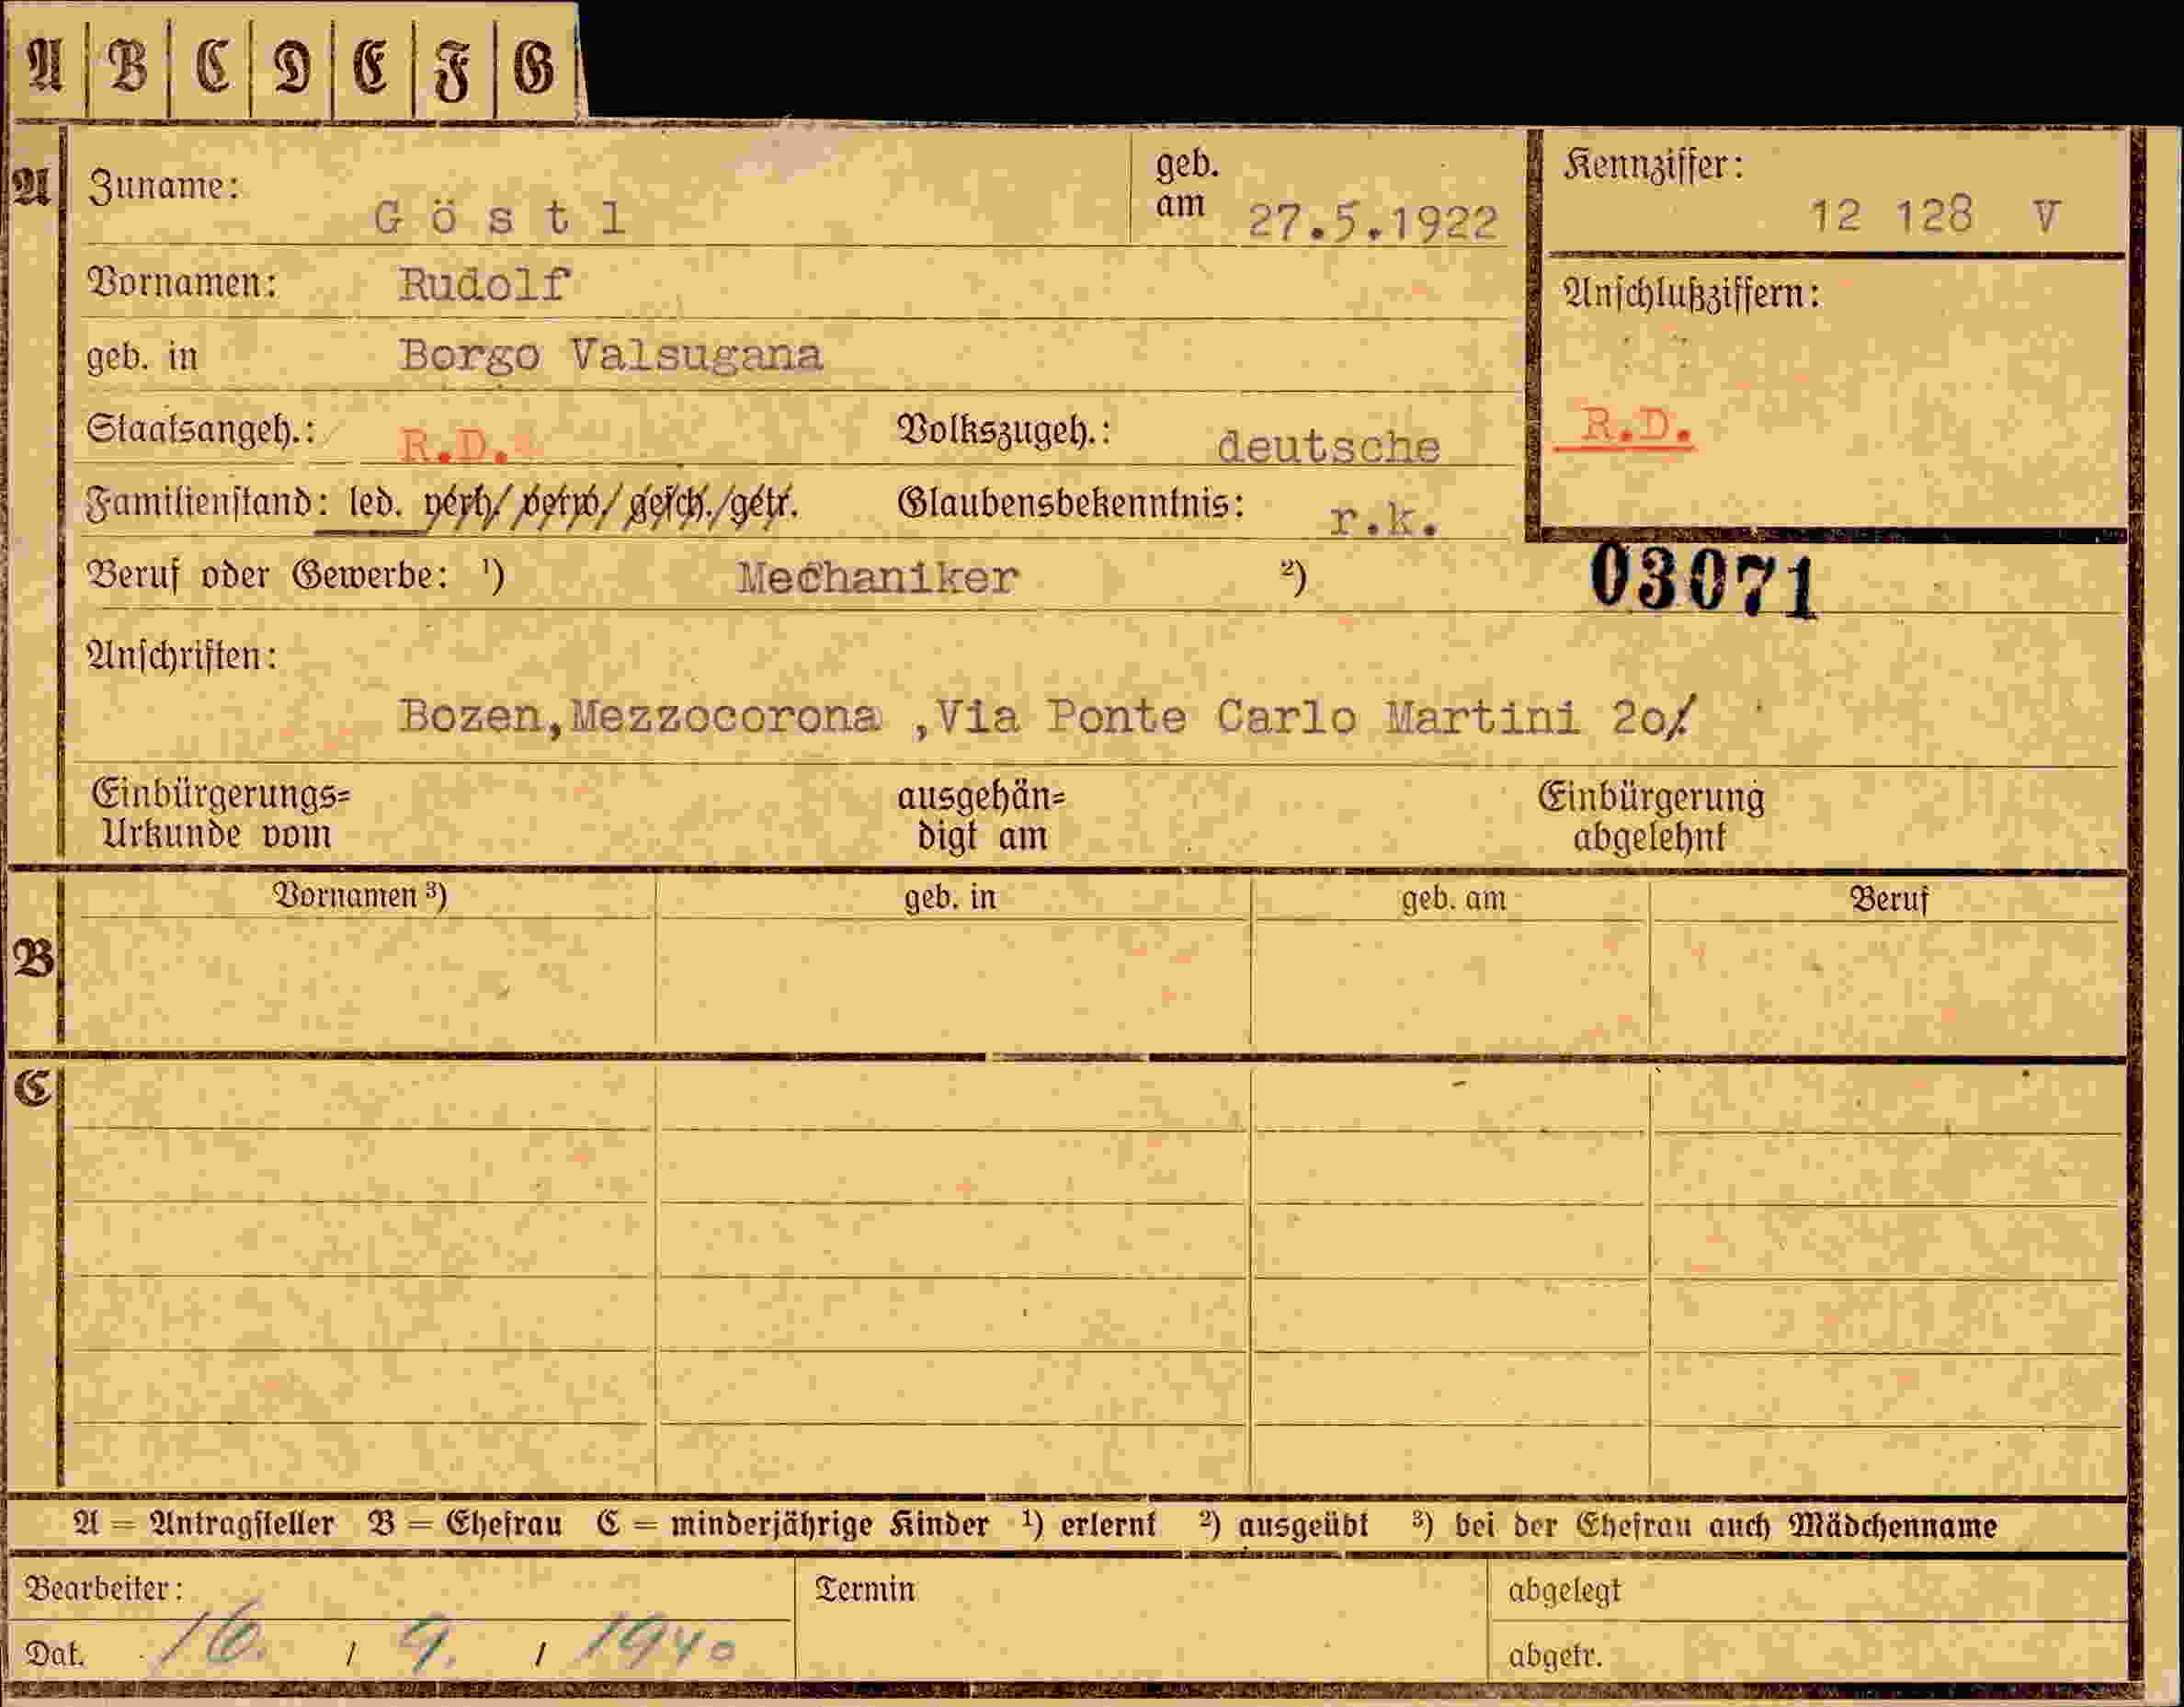 A B C D E F G
A Zuname: Göstl geb. am 27.5.1922 Kennziffer: 12 128 V
Vornamen: Rudolf Anschlußziffern:
geb. in Borgo Valsugana
Staatsangeh.: R.D. Volkszugeh.: deutsche R.D.
Familienstand: led. verh./verw./gesch./getr. Glaubensbekenntnis: r.k.
Beruf oder Gewerbe: ¹) Mechaniker ²) 03071
Anschriften:
Bozen,Mezzocorona ,Via Ponte Carlo Martini 20/
Einbürgerungs= ausgehän= Einbürgerung
Urkunde vom digt am abgelehnt
Vornamen ³) geb. in geb. am Beruf
B
C
A = Antragsteller B = Ehefrau C = minderjährige Kinder ¹) erlernt ²) ausgeübt ³) bei der Ehefrau auch Mädchenname
Bearbeiter: Termin abgelegt
Dat. 16. / 9. / 1940 abgetr.